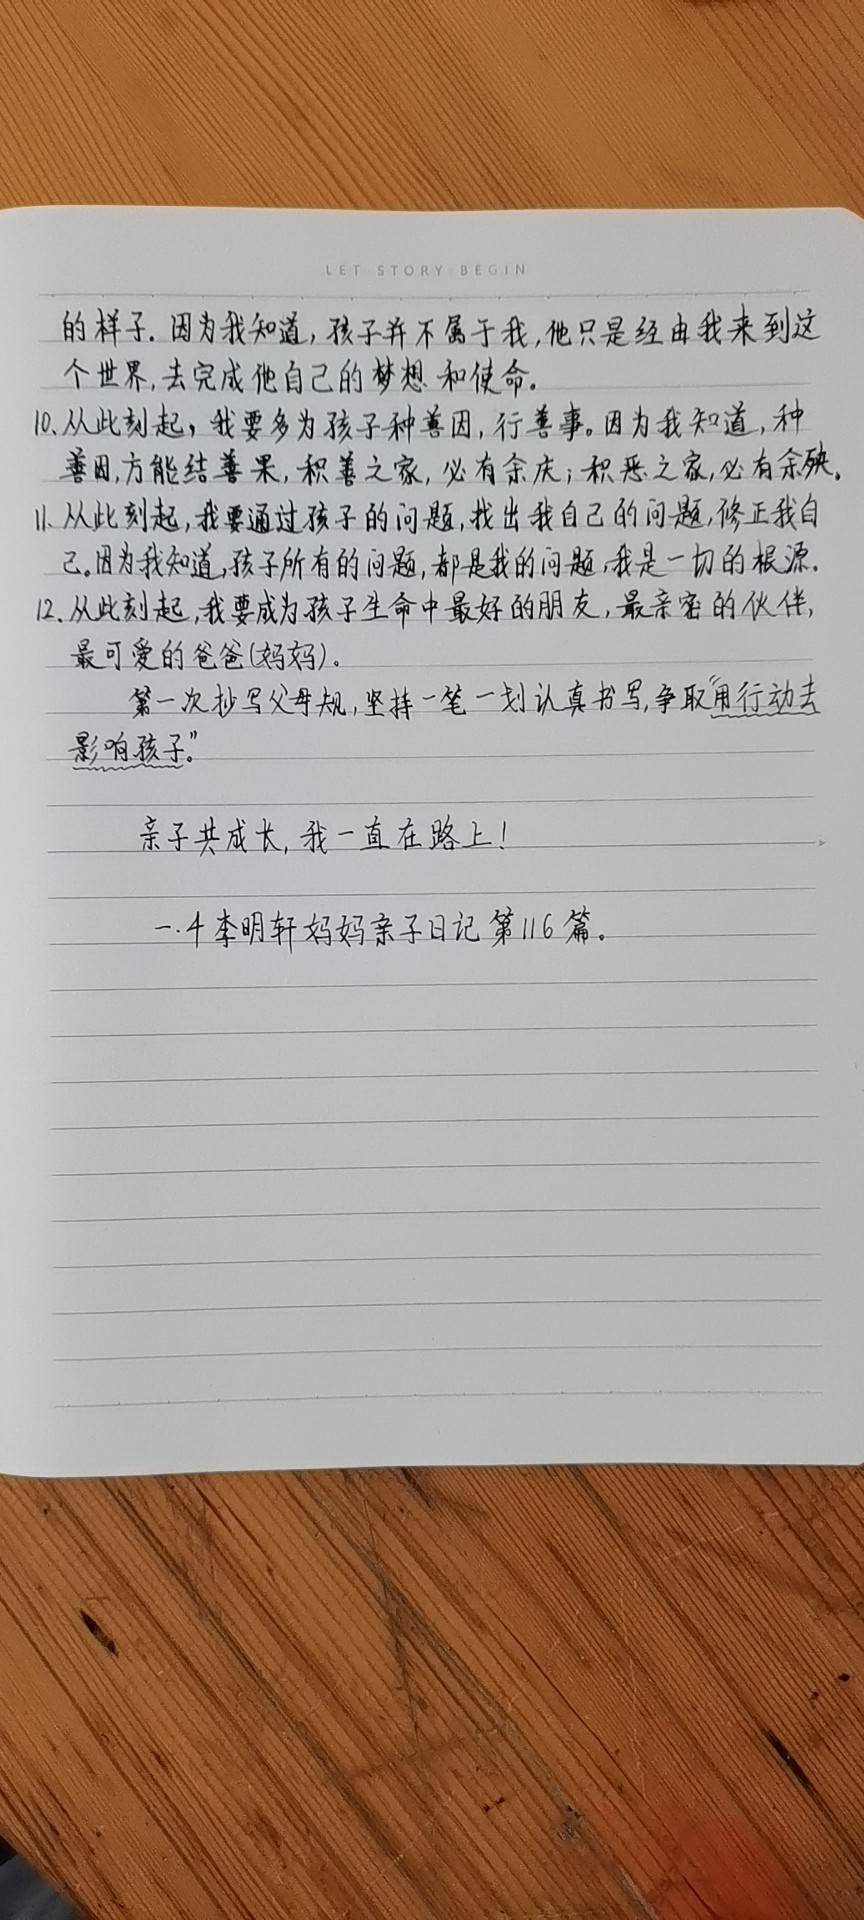 LET STORY BEGIN
的样子.因为我知道,孩子并不属于我,他只是经由我来到这
个世界,去完成他自己的梦想和使命。
10、从此刻起,我要多为孩子种善因,行善事。因为我知道,种
善因,方能结善果,积善之家,必有余庆;积恶之家,必有余殃。
11、从此刻起,我要通过孩子的问题,找出我自己的问题,修正我自
己。因为我知道,孩子所有的问题,都是我的问题,我是一切的根源.
12、从此刻起,我要成为孩子生命中最好的朋友,最亲密的伙伴,
最可爱的爸爸(妈妈)。
第一次抄写父母规,坚持一笔一划认真书写,争取“用行动去
影响孩子”。
亲子共成长,我一直在路上!
一.4李明轩妈妈亲子日记第116篇。